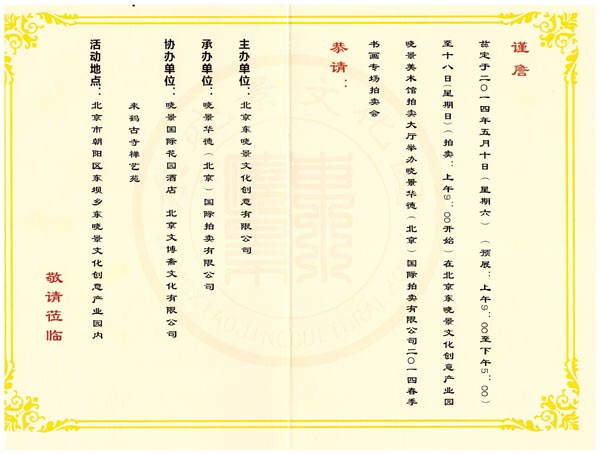 谨詹
兹定于二〇一四年五月十日（星期六）（预展：上午9：00至下午5：00）
至十八日（星期日）（拍卖：上午9：00开始）在北京东晓景文化创意产业园
晓景美术馆拍卖大厅举办晓景华德（北京）国际拍卖有限公司二〇一四春季
书画专场拍卖会
恭请：
主办单位：北京东晓景文化创意有限公司
承办单位：晓景华德（北京）国际拍卖有限公司
协办单位：晓景国际花园酒店 北京文博斋文化有限公司
来鹤古寺禅艺苑
活动地点：北京市朝阳区东坝乡东晓景文化创意产业园内
敬请莅临